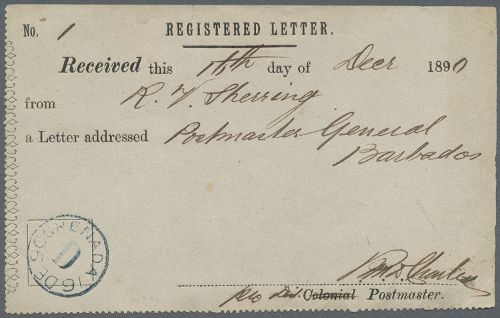 No. 1
REGISTERED LETTER.
Received this 16th day of Decr 1890
from R. F. Sherring
a Letter addressed Postmaster General
Barbados
GRENADA 16 DE 90
D
Colonial Postmaster.